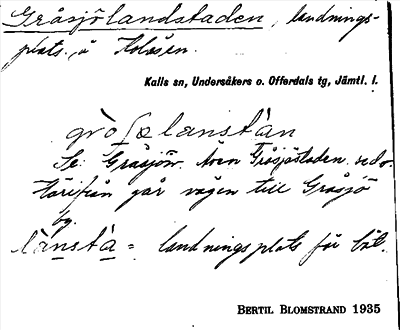 Gråsjölandstaden, landnings-
plats å Kolåsen.
Kalls sn, Undersåkers o. Offerdals tg, Jämtl. l.
gròſœlanstàn
Se Gråsjön. Även Gråsjöstaden.
Härifrån går vägen till Gråsjö
by.
lànstà = landningsplats för båt.
BERTIL BLOMSTRAND 1935